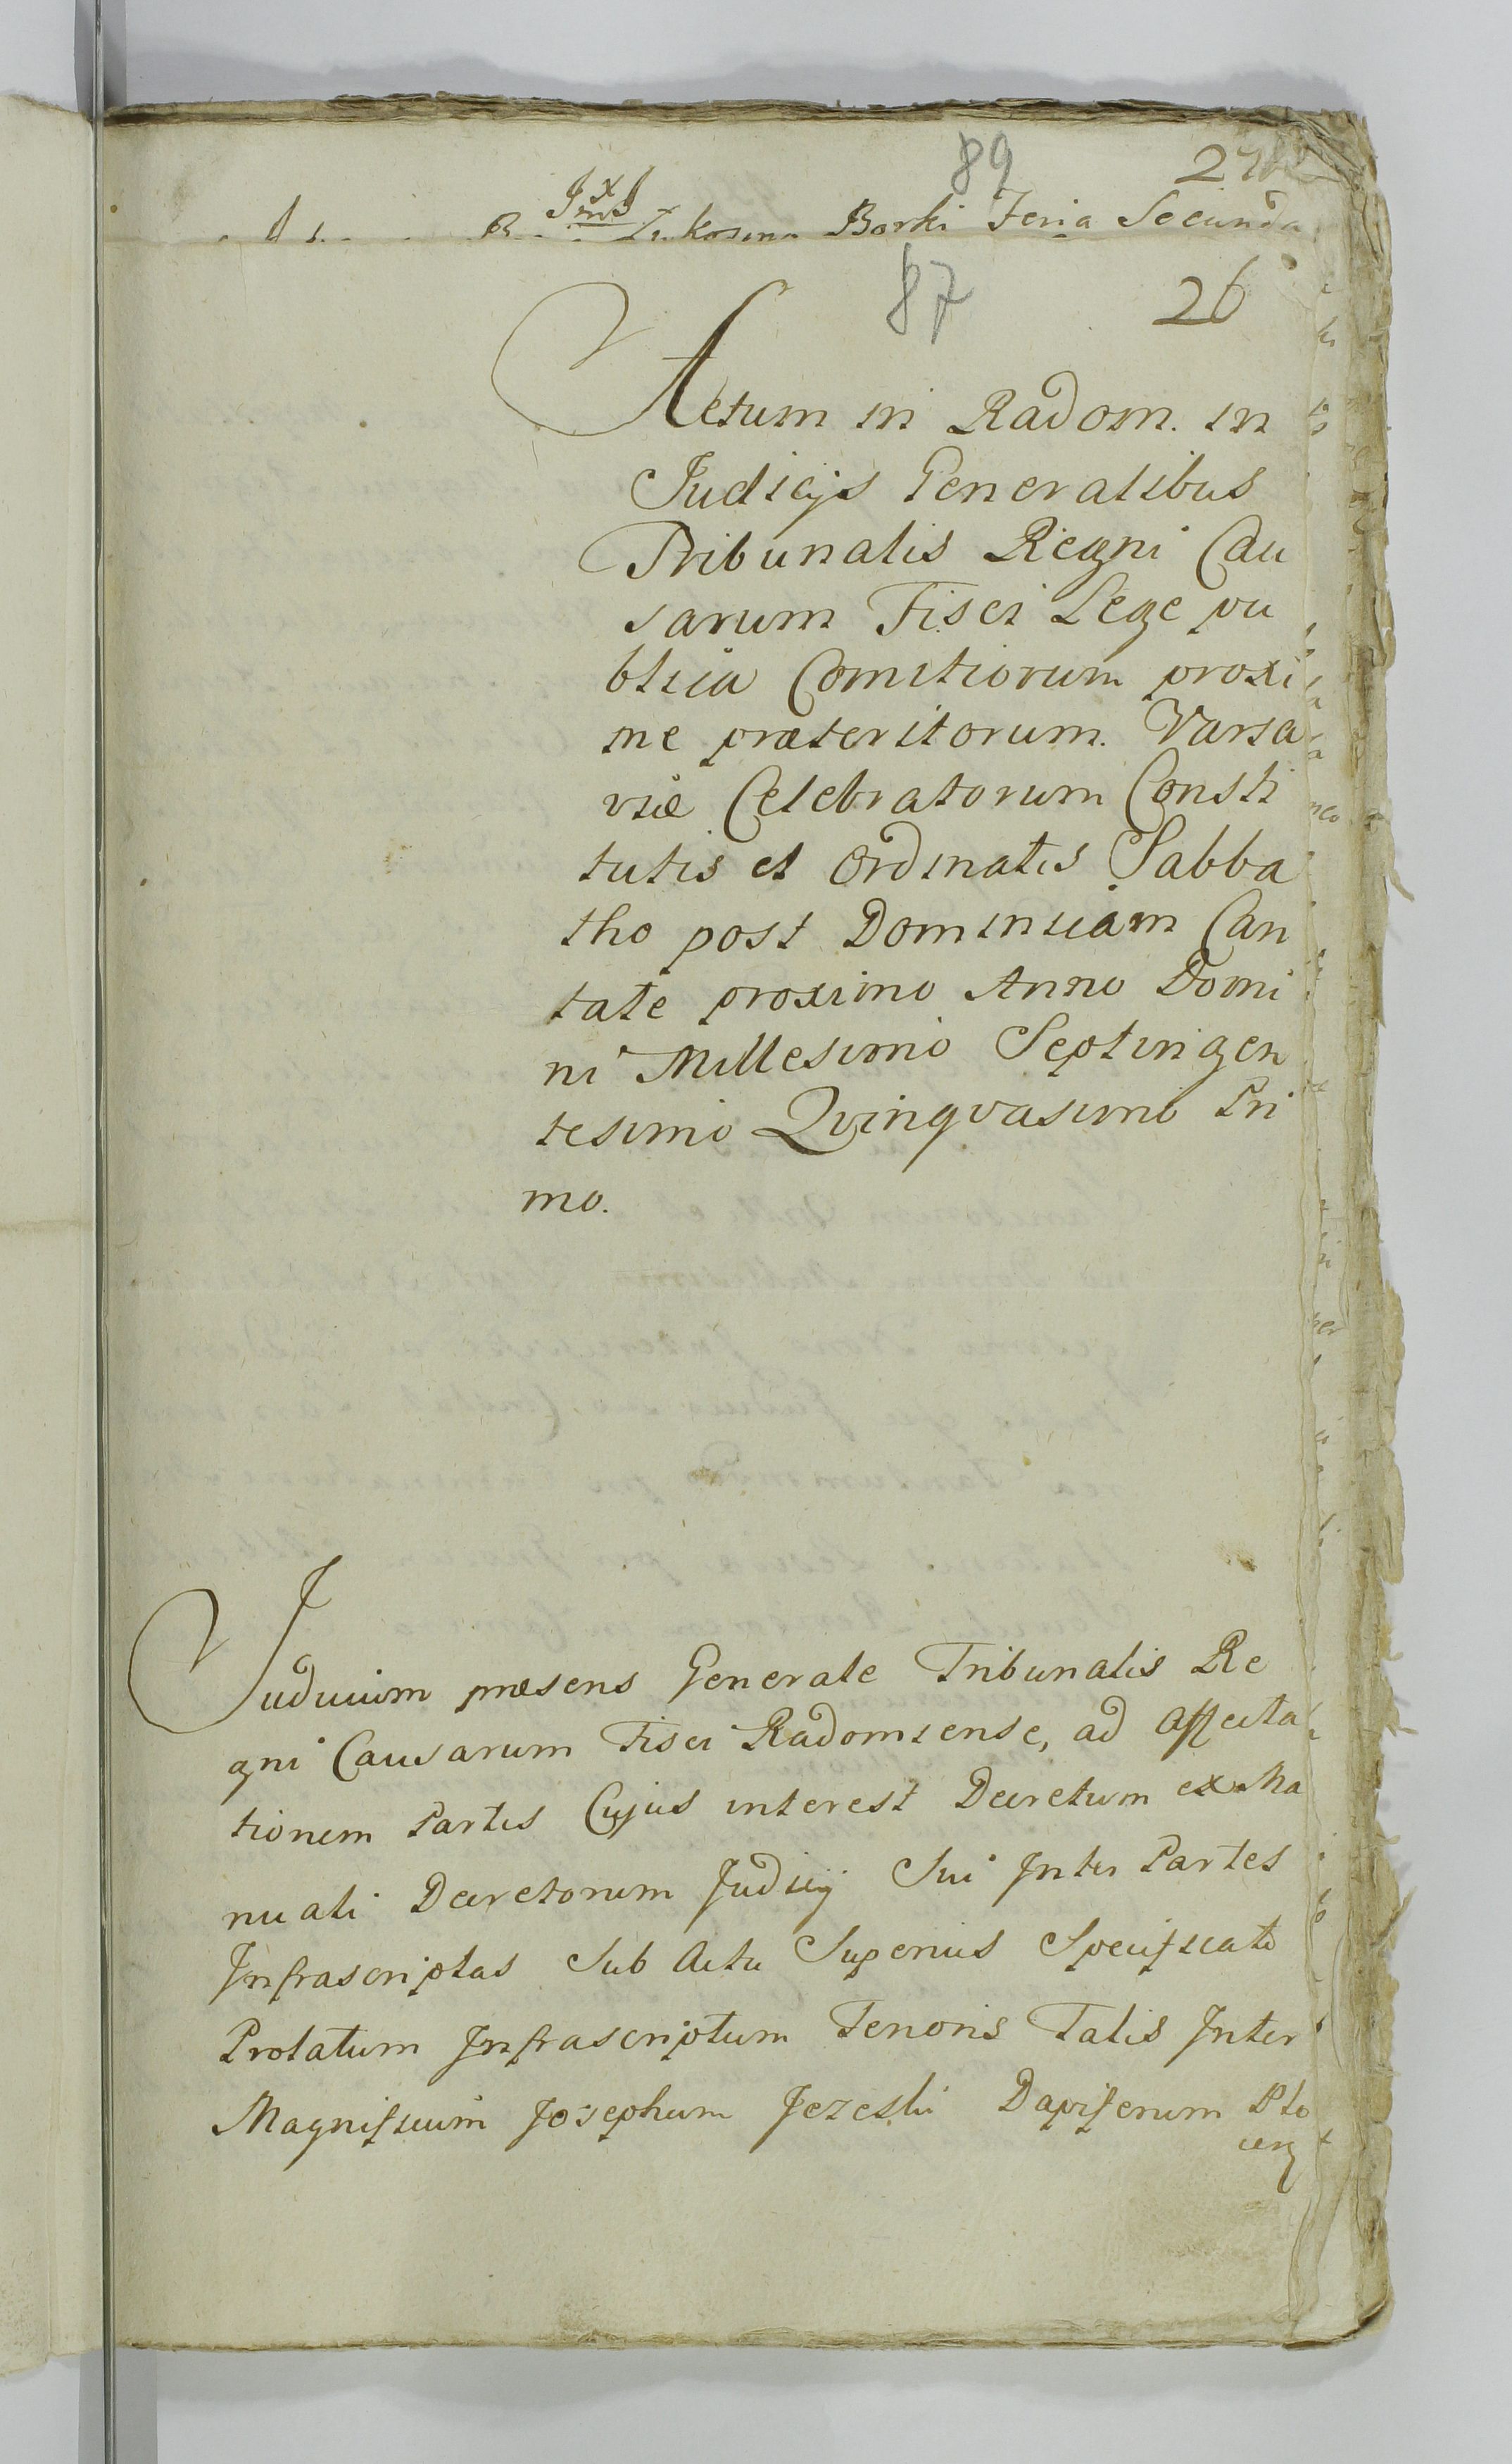 89
Borki Feria Secunda
87 26
Actum in Radom. in
Judicijs Generalibus
Tribunalis Regni Cau
sarum Fisci Lege pu
blica Comitiorum proxi
me præteritorum. Varsa
viæ Celebratorum Consti
tutis et Ordinatis Sabba
tho post Dominicam Can
tate proximo Anno Domi
ni Millesimo Septingen
tesimo Qvinqvasimo Pri
mo.
Judicium præsens Generale Tribunalis Re
gni Causarum Fisci Radomiense, ad affecta
tionem Partis Cujus interest Decretum ex Ma
nuali Decretorum Judicij Sui Inter Partes
Infrascriptas Sub Actu Superius Specificato
Prolatum Infrascriptum Tenoris Talis Inter
Magnificum Josephum Jezeski Dapiferum Plo